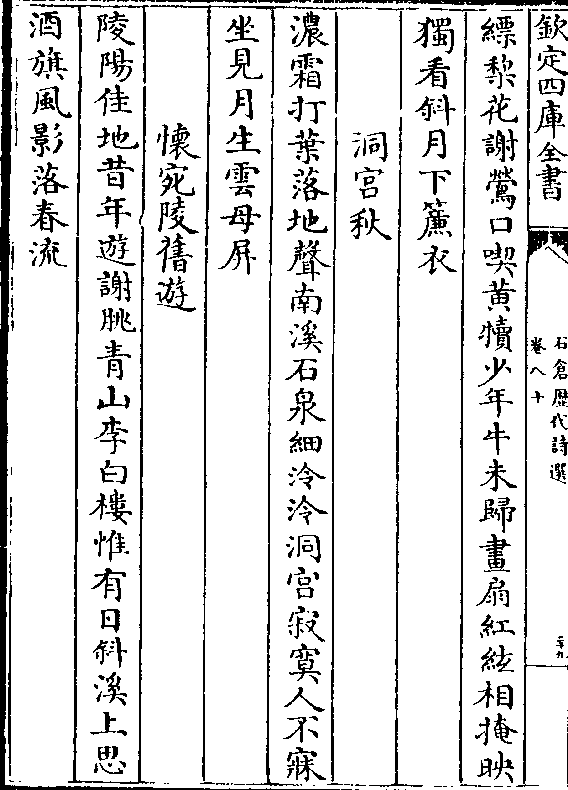 欽定四庫全書
石倉歴代詩選
卷八十
二十九
縹黎花謝鶯口喫黄犢少年牛未歸畫扇紅絃相掩映
獨看斜月下簾衣
洞宫秋
濃霜打葉落地聲南溪石泉細泠泠洞宫寂寞人不寐
坐見月生雲母屏
懷宛陵舊遊
陵陽佳地昔年遊謝朓青山李白樓惟有日斜溪上思
酒旗風影落春流